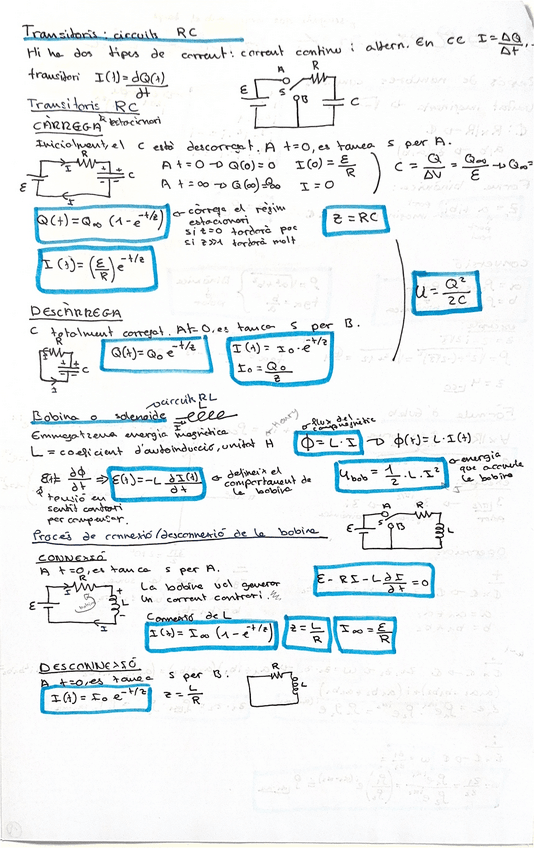 Transitoris: circuits RC
Hi ha dos tipus de corrent: corrent continu i altern. En cc I = ΔQ/Δt,
transitori I(t) = dQ(t)/dt
ε A R S B C
Transitoris RC
CÀRREGA estacionari
Inicialment, el C està descarregat. A t=0, es tanca S per A.
ε I R C I
A t=0 → Q(0)=0 I(0) = ε/R
A t=∞ → Q(∞)=Q∞ I=0
C = Q/ΔV = Q∞/ε → Q∞=
Q(t) = Q∞ (1-e^-t/z)
càrrega el règim
estacionari
si z=0 tardarà poc
si z>>1 tardarà molt
z = RC
I(t) = (ε/R) e^-t/z
U = Q²/2C
DESCÀRREGA
C totalment carregat. A t=0, es tanca S per B.
R C I
Q(t) = Q0 e^-t/z
I(t) = I0 · e^-t/z
I0 = Q0/z
circuits RL
Bobina o solenoide L I
Emmagatzema energia magnètica
L = coeficient d'autoinducció, unitat H Henry
flux del camp magnètic
Φ = L · I → Φ(t) = L · I(t)
dΦ/dt ⇒ ε(t) = -L dI(t)/dt
defineix el
comportament de
la bobina
tensió en
sentit contrari
per compensar.
Ubob = 1/2 · L · I²
energia
que acumula
la bobina
Procés de connexió/desconnexió de la bobina
ε A S B R L
CONNEXIÓ
A t=0, es tanca S per A.
ε I R L I
La bobina vol generar
un corrent contrari.
ε - RI - L dI/dt = 0
Corrent de L
I(t) = I∞ (1-e^-t/z) z = L/R I∞ = ε/R
DESCONNEXIÓ
A t=0, es tanca S per B.
I(t) = I0 e^-t/z z = L/R
R L